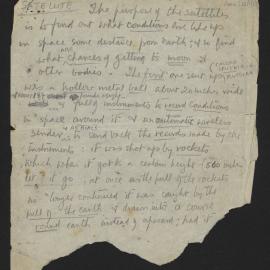 SATELLITE The purpose of the satellites
is to find out what conditions are like up
in space some distance from earth & to find
what chances of getting to moon &
other bodies. The first one sent up
was a hollow metal ball about 2 inches wide
full of instruments to record conditions
in space around it & an automatic wireless
AERIALS
sender to send back the records made by the
instruments: it was shot up by rockets
which when it got to a certain height 500 miles
let it go: at once as the pull of the rockets
no longer continued it was caught by the
pull of the earth & drawn into a course
round earth instead of upward; had it